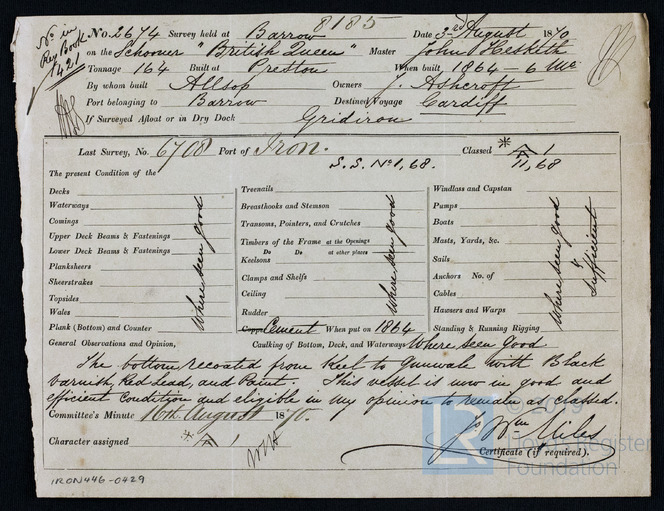 8185
No in
Reg Book
1421
No. 2674 Survey held at Barrow Date 3rd August 1870
on the Schooner "British Queen" Master John Hesketh
Tonnage 164 Built at Preston When built 1864 - 6 Mo
By whom built Allsop Owners J. Ashcroft
Port belonging to Barrow Destined Voyage Cardiff
If Surveyed Afloat or in Dry Dock Gridiron
Last Survey, No. 6708 Port of Iron. Classed * A 1
S.S. No 1, 68. 11, 68
The present Condition of the
Decks
Waterways
Comings
Upper Deck Beams & Fastenings
Lower Deck Beams & Fastenings
Planksheers
Sheerstrakes
Topsides
Wales
Plank (Bottom) and Counter
Where seen good
Treenails
Breasthooks and Stemson
Transoms, Pointers, and Crutches
Timbers of the Frame at the Openings
Do Do at other places
Keelsons
Clamps and Shelfs
Ceiling
Rudder
Cement When put on 1864
Where seen good
Windlass and Capstan
Pumps
Boats
Masts, Yards, &c.
Sails
Anchors No. of
Cables
Hawsers and Warps
Standing & Running Rigging
Where seen good
& Sufficient
General Observations and Opinion, Caulking of Bottom, Deck, and Waterways Where seen good
The bottom recoated from Keel to Gunwale with Black
varnish, Red Lead, and Paint. This vessel is now in good and
efficient condition and eligible in my opinion to remain as classed.
Committee's Minute 16th August 1870.
Character assigned * A 1
Jos Wm Miles
Certificate (if required).
IRON446-0429
© 2019
LR
Lloyd's Register
Foundation